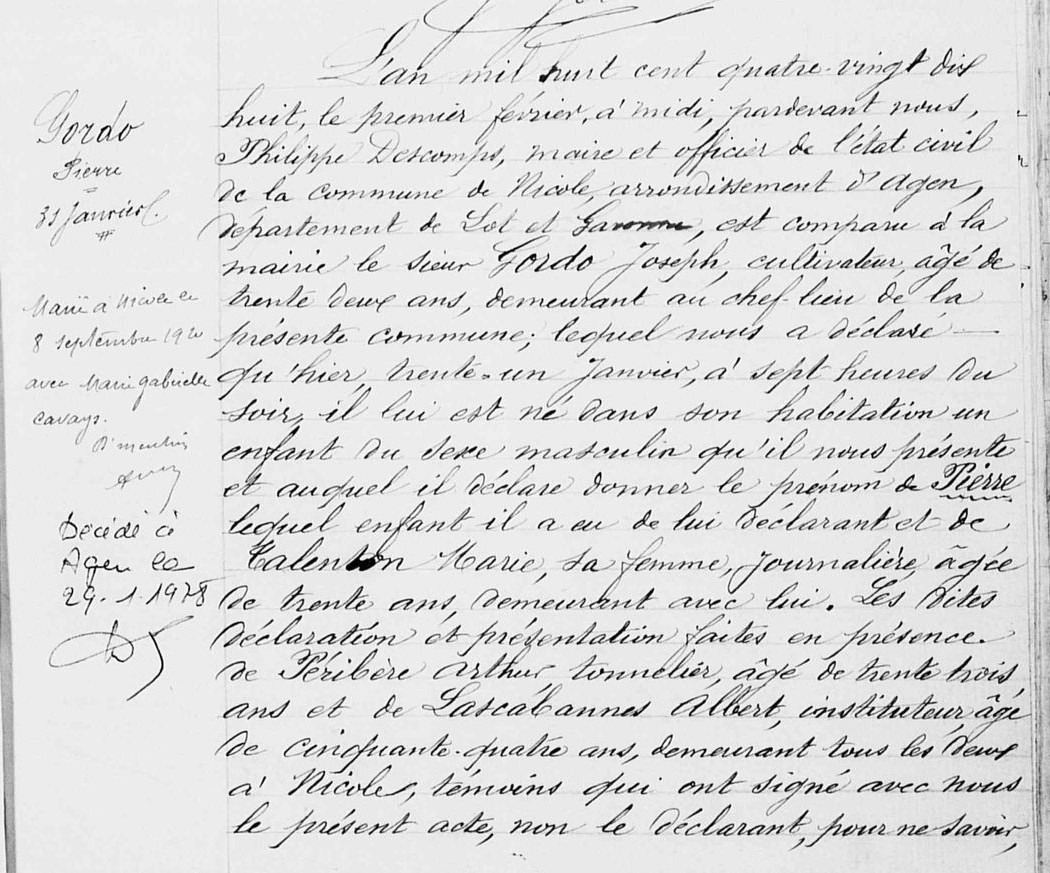 Gordo
Pierre
31 Janvier
Marié à Nicole le
8 septembre 1920
avec Marie gabrielle
Cavays.
Dt mention
Décédé à
Agen le
29.1.1978
L'an mil huit cent quatre-vingt dix
huit, le premier février, à midi, pardevant nous,
Philippe Descomps, maire et officier de l'état civil
de la commune de Nicole, arrondissement d'Agen,
département de Lot et Garonne, est comparu à la
mairie le sieur Gordo Joseph, cultivateur, âgé de
trente deux ans, demeurant au chef-lieu de la
présente commune; lequel nous a déclaré —
qu'hier, trente-un Janvier, à sept heures du
soir, il lui est né dans son habitation un
enfant du sexe masculin qu'il nous présente
et auquel il déclare donner le prénom de Pierre
lequel enfant il a eu de lui déclarant et de
Talenton Marie, sa femme, journalière, âgée
de trente ans, demeurant avec lui. Les dites
déclaration et présentation faites en présence
de Péribère Arthur tonnelier, âgé de trente trois
ans et de Lascabannes Albert, instituteur, âgé
de cinquante-quatre ans, demeurant tous les deux
à Nicole, témoins qui ont signé avec nous
le présent acte, non le déclarant, pour ne savoir,